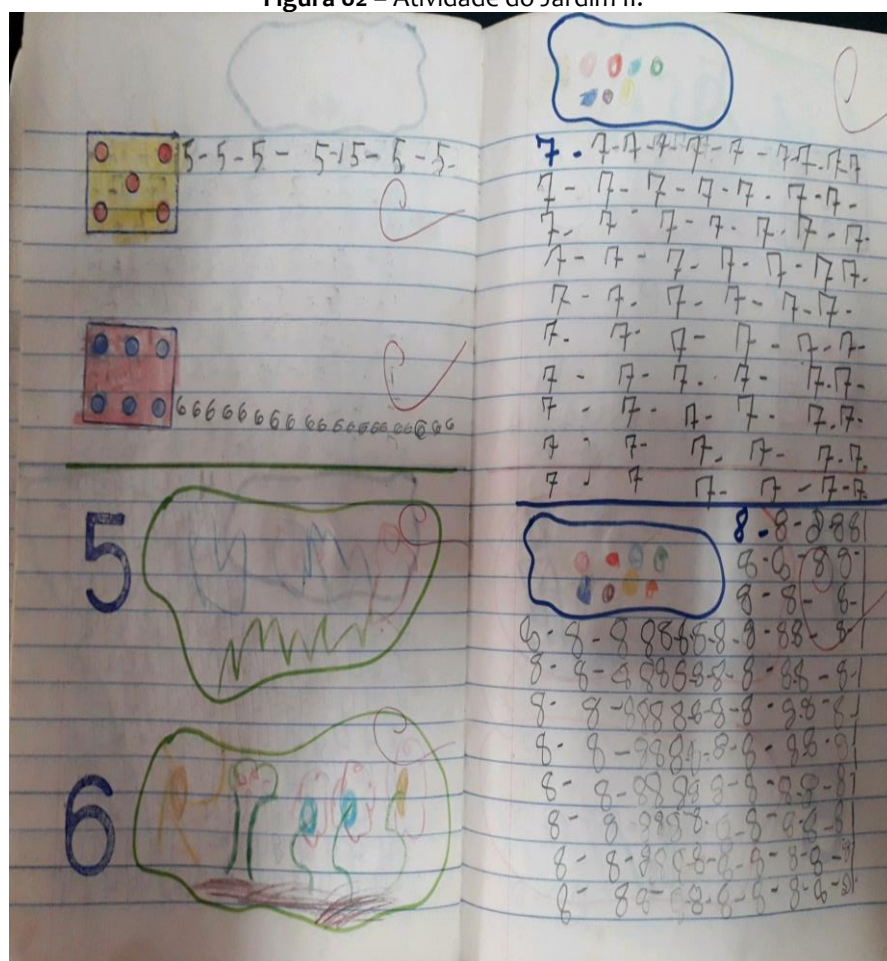 Figura 02 – Atividade do Jardim II.
5-5-5- 5-15- 5-5-
6 6 6 6 6 6 6 6 6 6 6 6 6 6 6 6 6 6 6
5
6
7-7-7-7-7-7-7-7.7.7
7-7-7-7-7.7-7.
7. 7- 7-7-7.7-7.
7-7-7.7-7-77.
7-7.7-7-7-7.
7. 7. 7- 7- 7-7-
7- 7-7. 7- 7.7-
7- 7- 7- 7- 7.7.
7- 7- 7. 7- 7.7.
7- 7 7- 7-7-7.
8-8-888
8-8-88-
8-8-8-
8-8-88888-8-88-8-
8-8-88888-8-88-8-
8-8-88888-8-88-8-
8-8-8888-8-8-88-8
8-8-88888-8-88-8
8-8-8888-8-88-8
8-8-8888-8-8-8-8
8-88-88-8-8-8-8